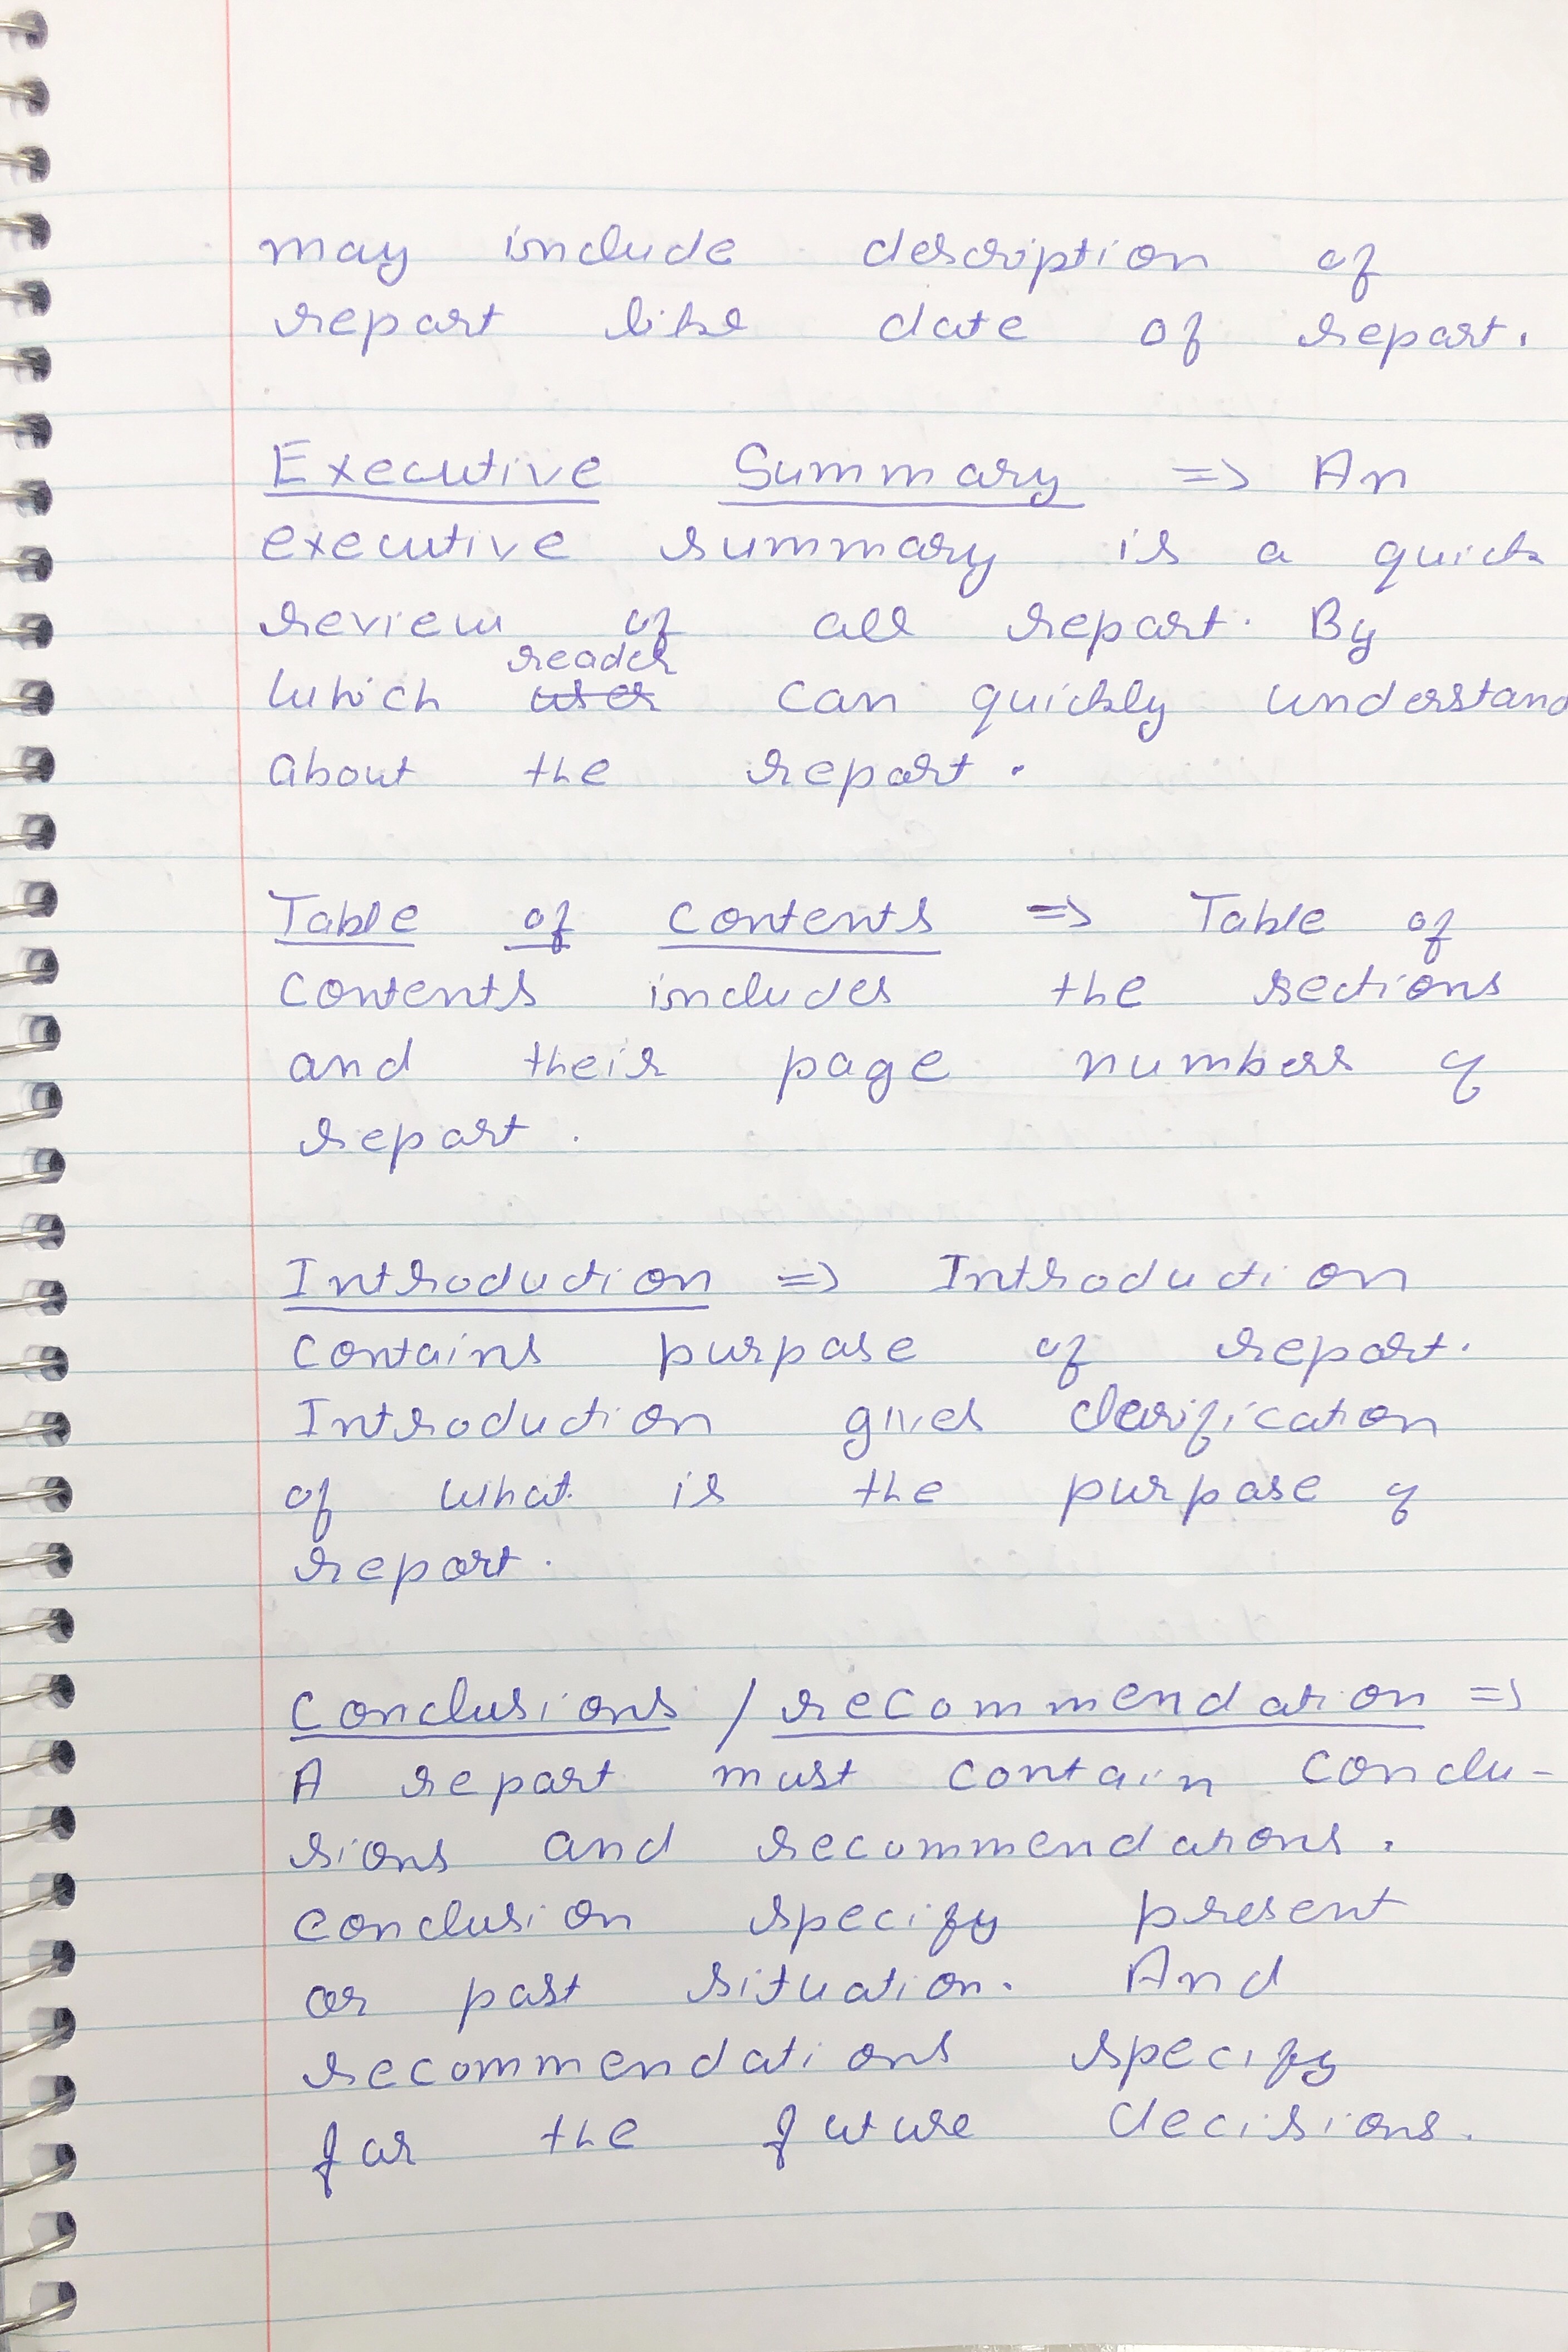 may include description of
report like date of report.
Executive Summary => An
executive summary is a quick
review of all report. By
reader
which user can quickly understand
about the report.
Table of contents => Table of
contents includes the sections
and their page numbers of
report.
Introduction => Introduction
contains purpose of report.
Introduction gives clarification
of what is the purpose of
report.
Conclusions / recommendation =>
A report must contain conclu-
sions and recommendations.
conclusion specify present
or past situation. And
recommendations specify
for the future decisions.